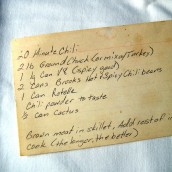 20 Minute Chili
2 lb Ground Chuck (or mix w/ Turkey)
1 Lg Can V8 (spicy good)
2 cans Brooks Hot & Spicy Chili beans
1 Can Rotelle
Chili powder to taste
1/2 can Cactus
Brown meat in skillet, Add rest of in
cook (the longer, the better)